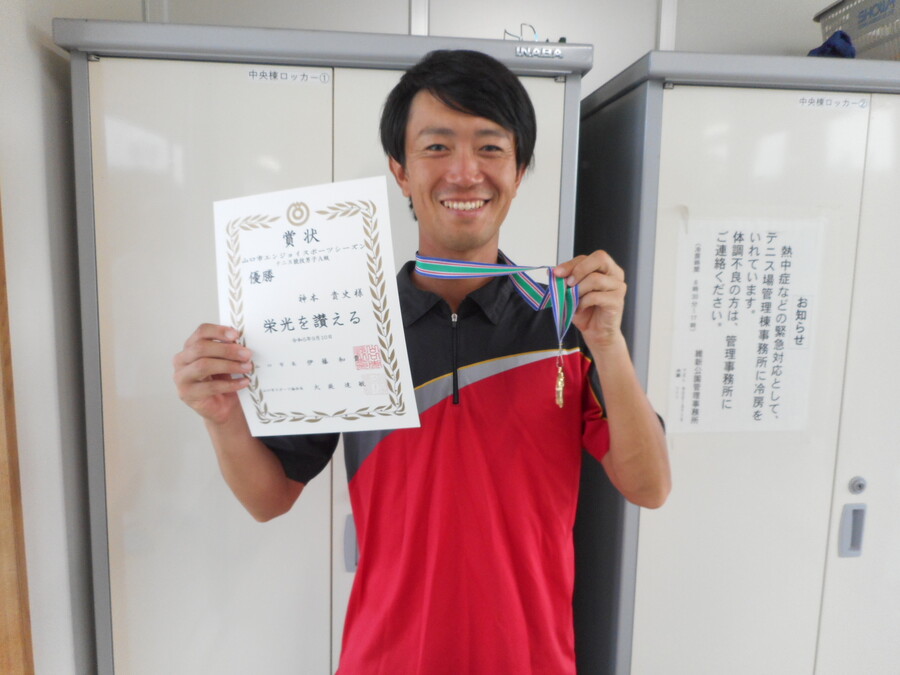 INABA
中央棟ロッカー①
中央棟ロッカー②
SHOWA
賞状
山口市エンジョイスポーツシーズン
テニス競技男子A級
優勝
神本 貴史様
栄光を讃える
伊藤和
お知らせ
熱中症などの緊急対応として、
テニス場管理棟事務所に冷房を
いれています。
体調不良の方は、管理事務所に
ご連絡ください。
維新公園管理事務所